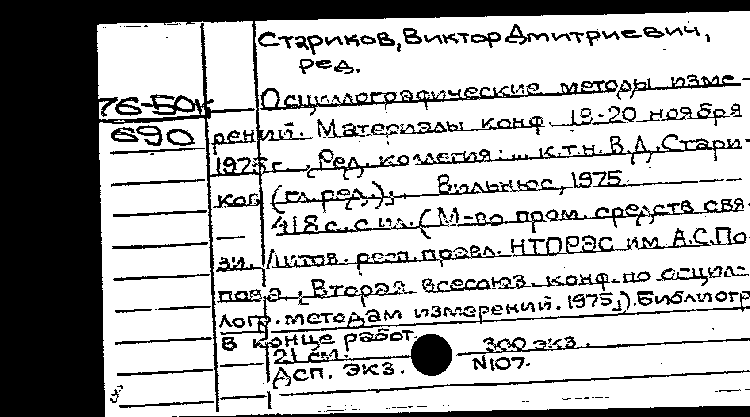 Стариков, Виктор Дмитриевич,
ред.
76-50к Осциллографические методы изме-
690 рений. Материалы конф. 18-20 ноября
1975 г. ; Ред. коллегия: ... к.т.н. В.Д. Стари-
ков (гл. ред.); Вильнюс, 1975.
418 с. с ил. (М-во пром. средств свя-
зи. Литов. респ. правл. НТОРЭС им А.С. По-
пова ; Вторая всесоюз. конф. по осцил-
логр. методам измерений. 1975,). Библиогр
в конце работ.
21 см. 300 экз.
Дсп. экз. N107.